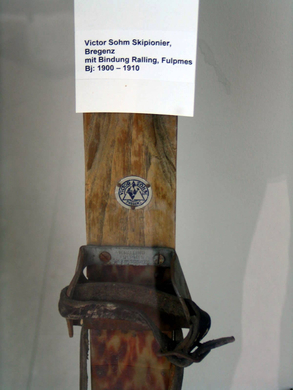 Victor Sohm Skipionier,
Bregenz
mit Bindung Ralling, Fulpmes
Bj: 1900 – 1910